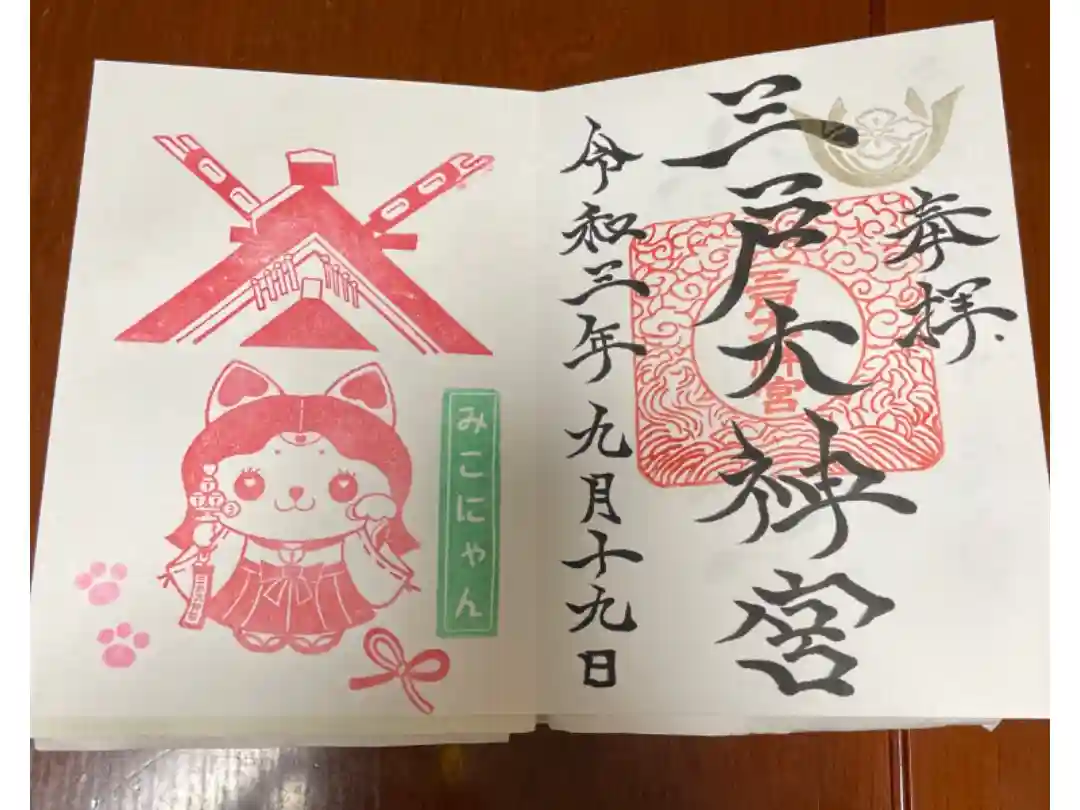 奉拝
三戸大神宮
三戸大神宮
令和三年九月十九日
みこにゃん